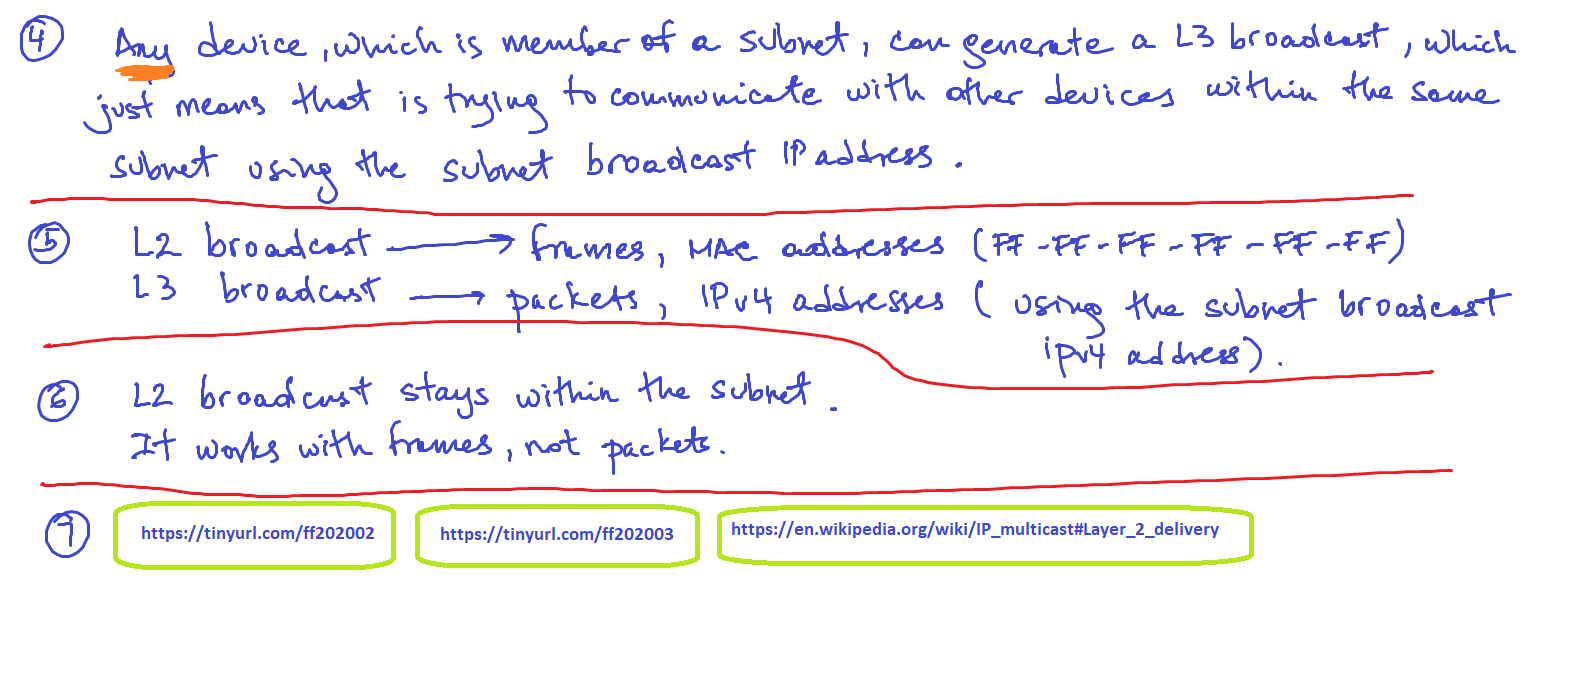 ④ Any device, which is member of a subnet, can generate a L3 broadcast, which
just means that is trying to communicate with other devices within the same
subnet using the subnet broadcast IP address.
⑤ L2 broadcast → frames, MAC addresses (FF-FF-FF-FF-FF-FF)
L3 broadcast → packets, IPv4 addresses (using the subnet broadcast
ipv4 address).
⑥ L2 broadcast stays within the subnet.
It works with frames, not packets.
⑦ https://tinyurl.com/ff202002 https://tinyurl.com/ff202003 https://en.wikipedia.org/wiki/IP_multicast#Layer_2_delivery